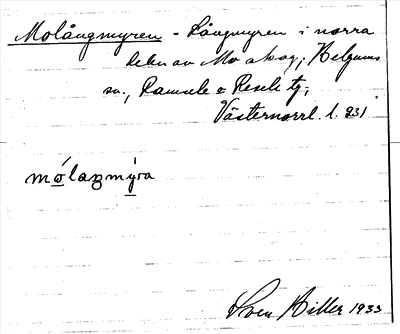 Molångmyren - Långmyren i norra
delen av Mo skog; Helgums
sn., Ramsele o Resele tg;
Västernorrl. l. 231
mólaŋmýra
Sven Hiller 1933